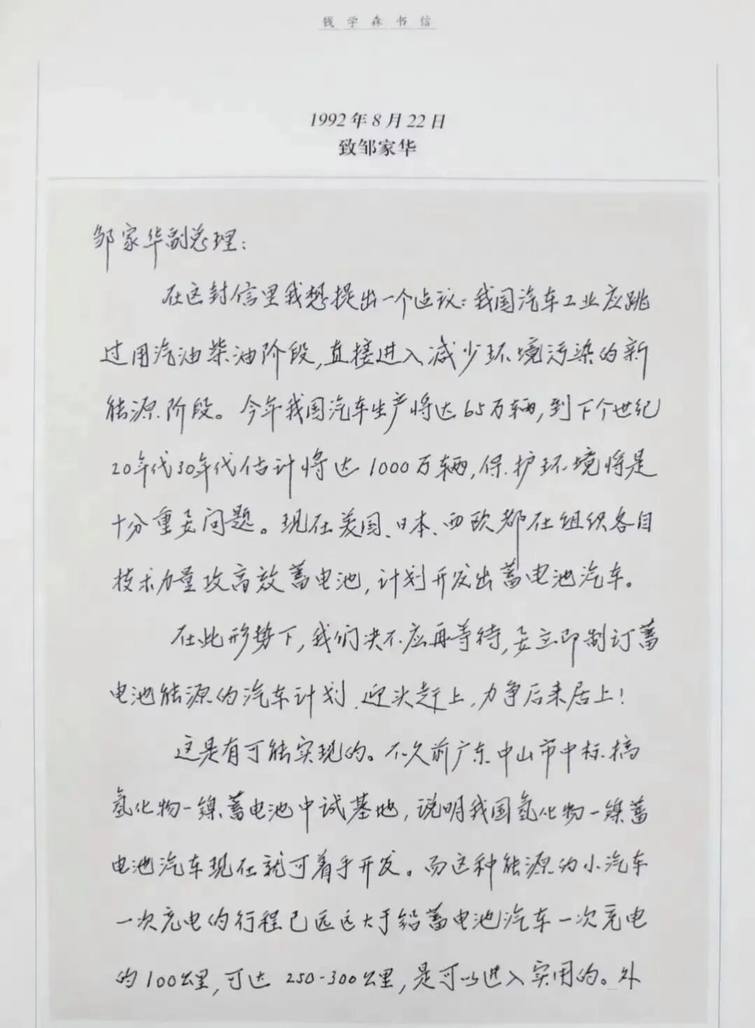 钱学森书信
1992年8月22日
致邹家华
邹家华副总理：
在这封信里我想提出一个建议：我国汽车工业应跳
过用汽油柴油阶段，直接进入减少环境污染的新
能源阶段。今年我国汽车生产将达65万辆，到下个世纪
20年代30年代估计将达1000万辆，保护环境将是
十分重要问题。现在美国、日本、西欧都在组织各自
技术力量攻高效蓄电池，计划开发出蓄电池汽车。
在此形势下，我们决不应再等待，要立即制订蓄
电池能源的汽车计划，迎头赶上，力争后来居上！
这是有可能实现的。不久前广东中山市中标搞
氢化物—镍蓄电池中试基地，说明我国氢化物—镍蓄
电池汽车现在就可着手开发。而这种能源的小汽车
一次充电的行程已远远大于铅蓄电池汽车一次充电
的100公里，可达250-300公里，是可以进入实用的。外